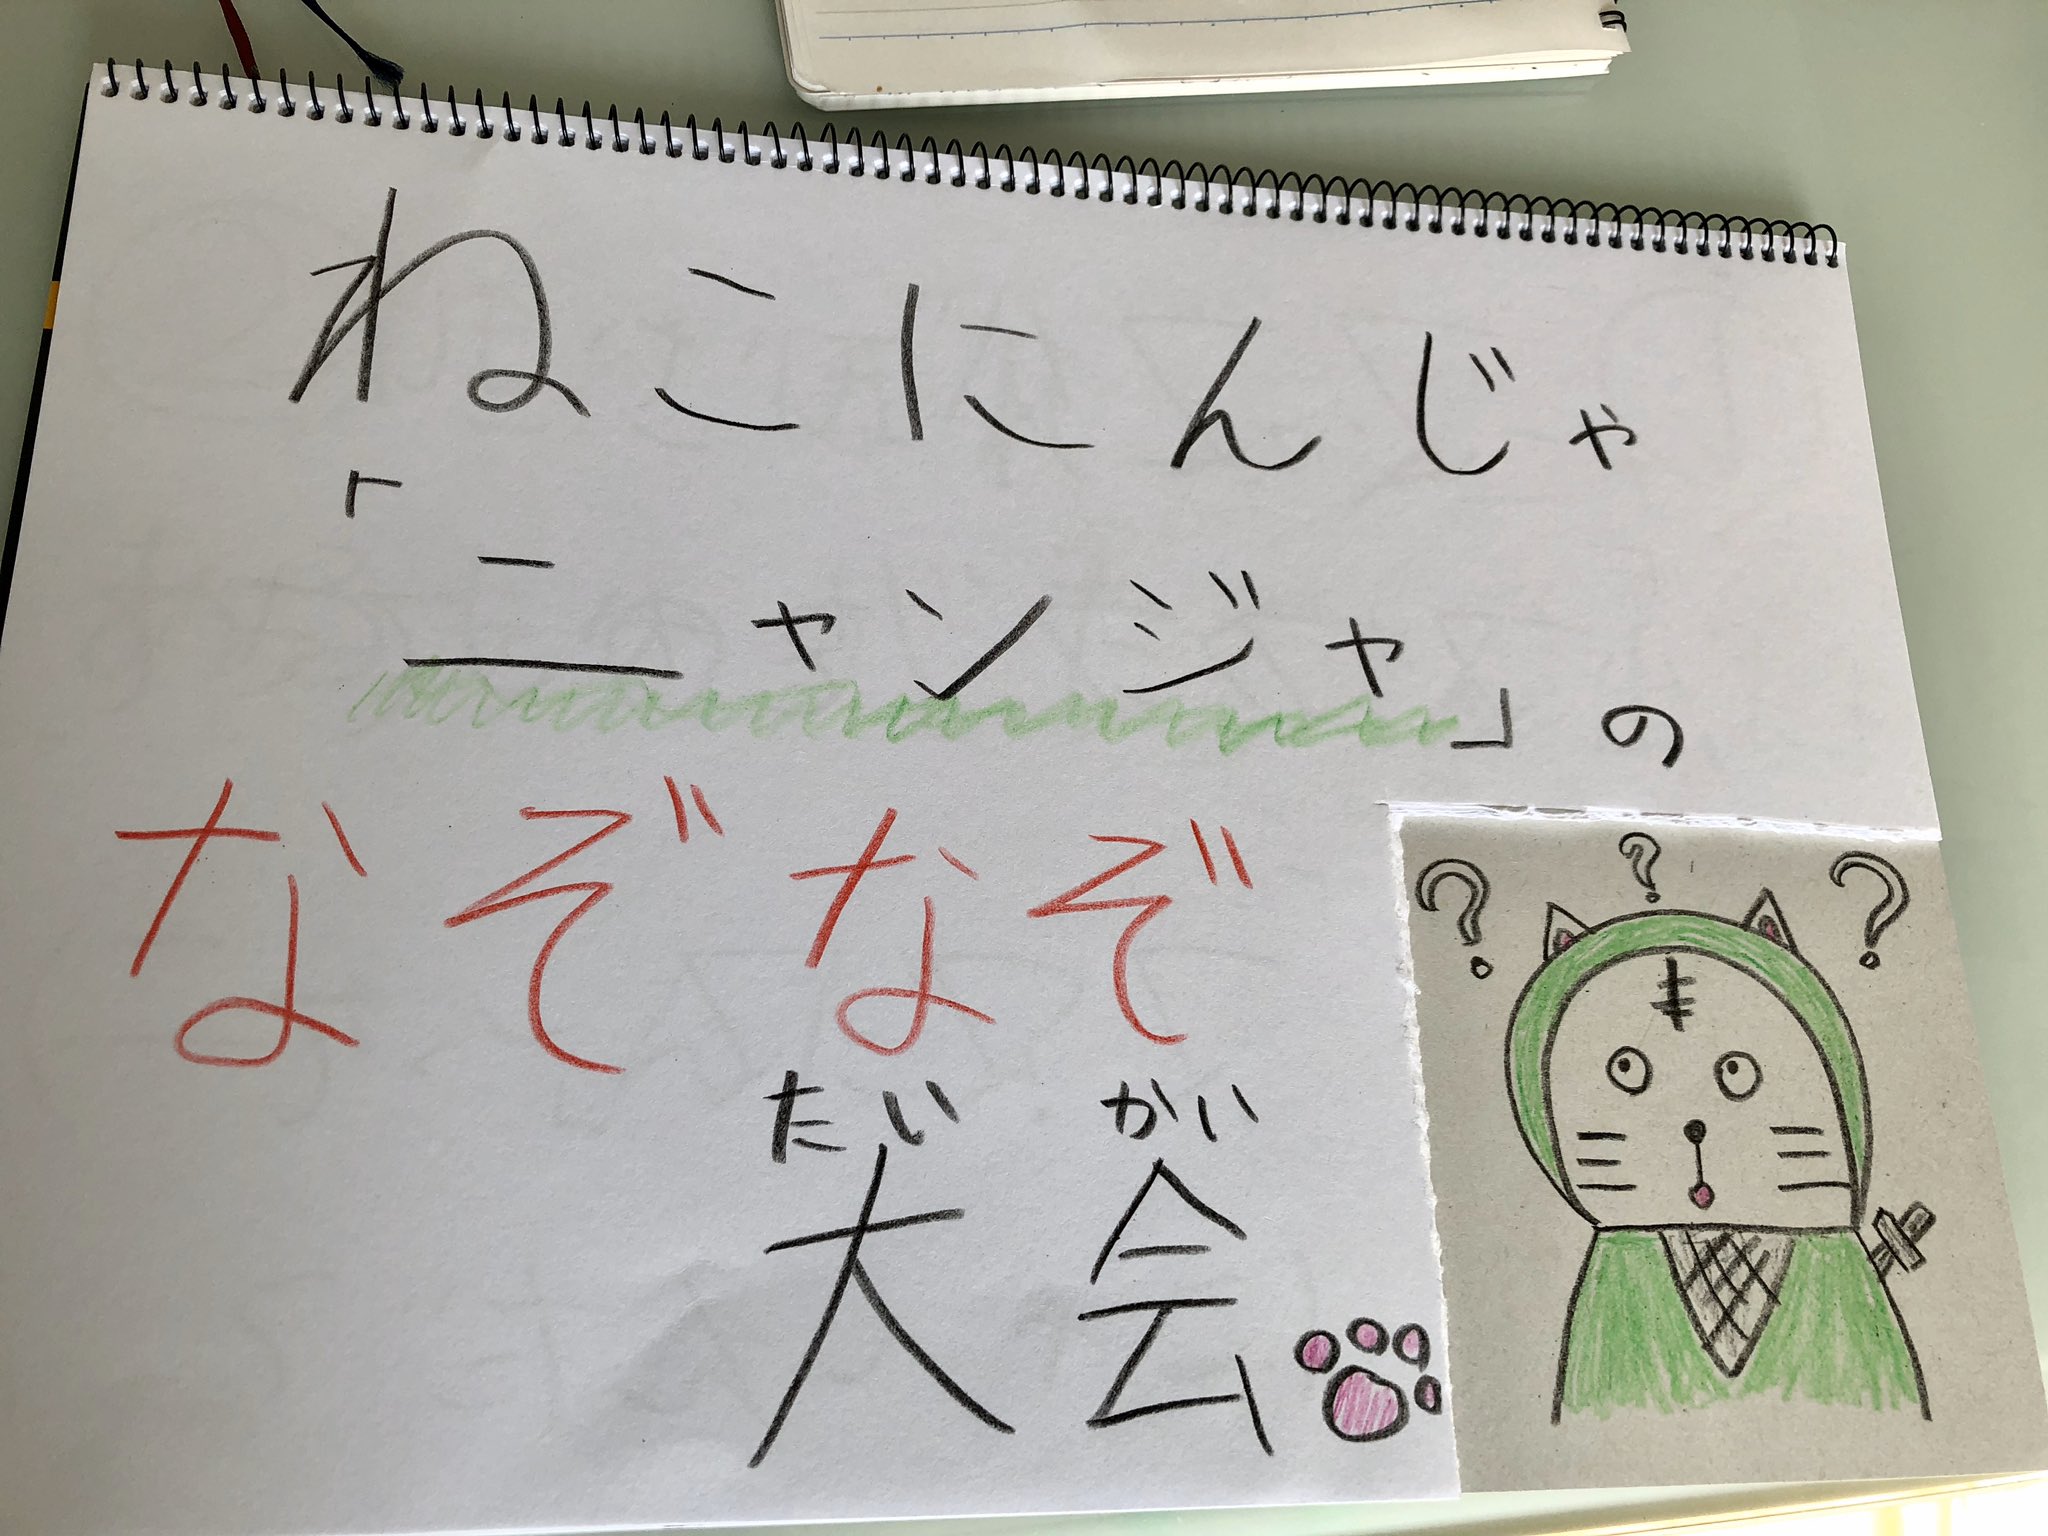 ねこにんじゃ
「ニャンジャ」の
なぞなぞ
だい がい
大会
? ? ?